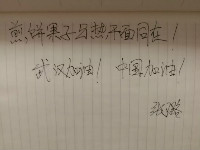 煎饼果子与热干面同在！
武汉加油！中国加油！